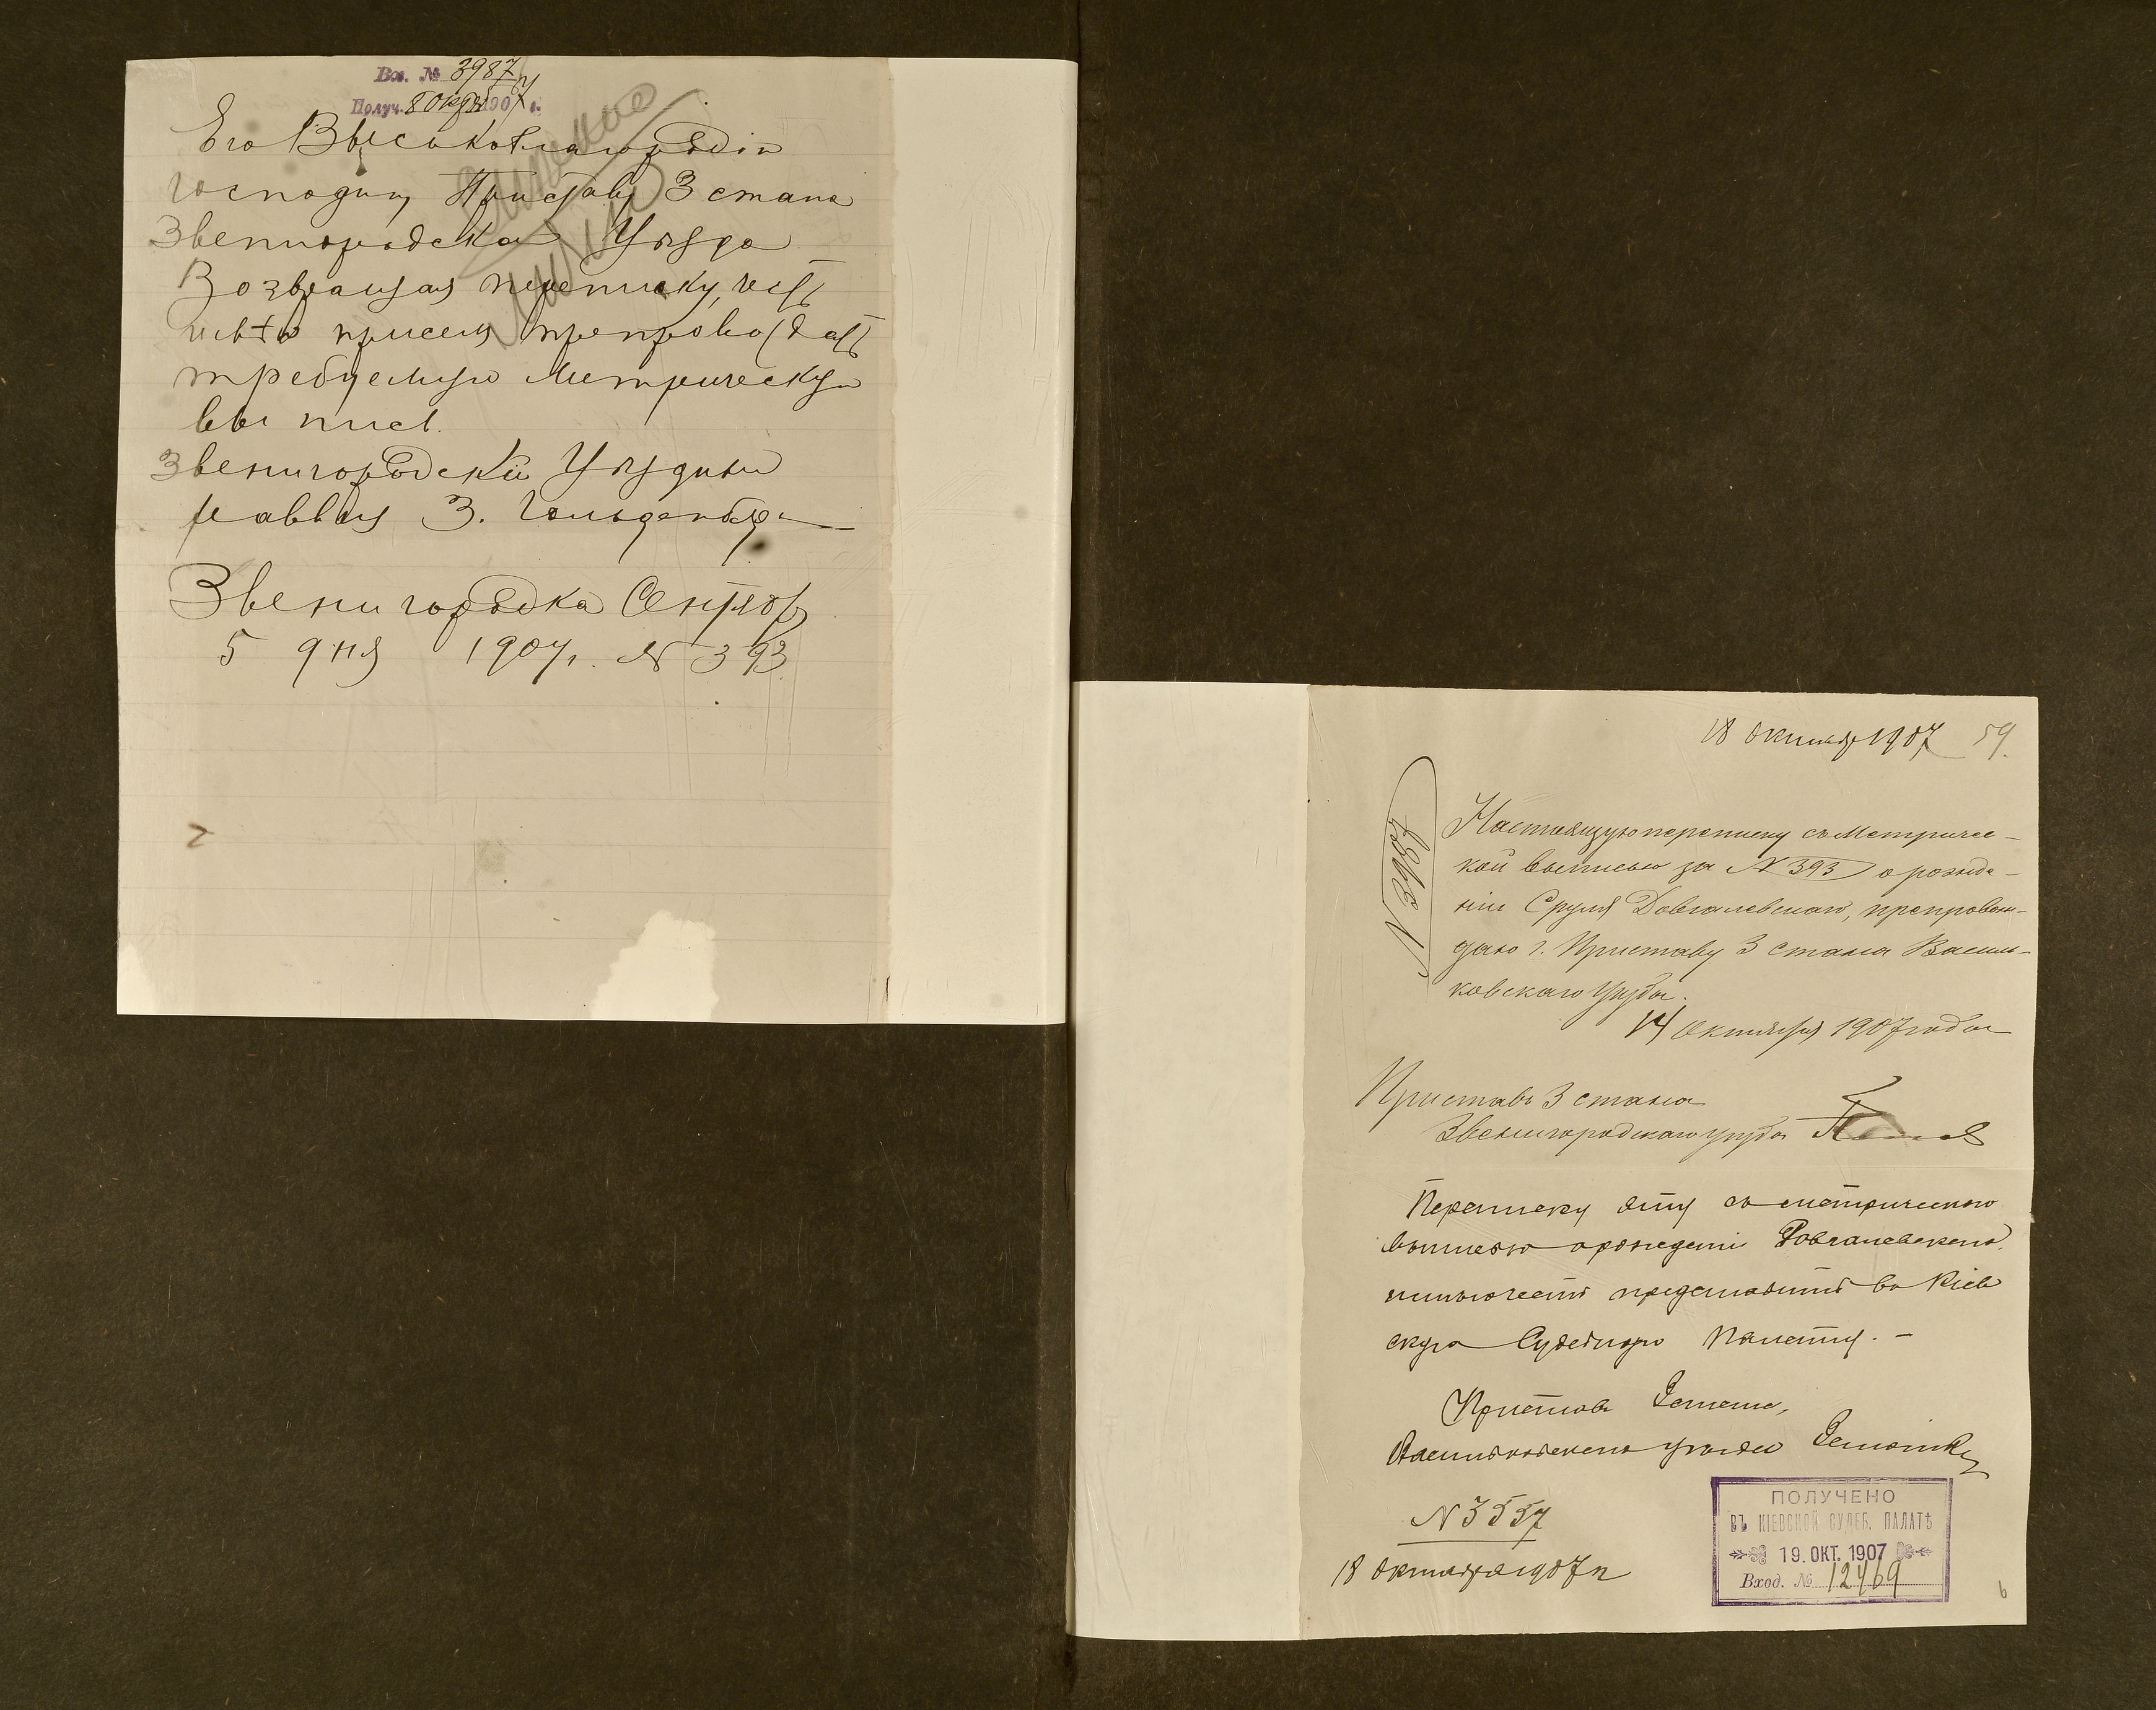 Вх. № 3987
Получ. 8 Окт 1907 г.
Его Высокоблагородію
Господину Приставу 3 стана
Звенигородска Уѣзда
Возвращая переписку, честь
имѣю присемъ препроводать
требуемую Метрическую
выпись.
Звенигородскій Уѣздный
раввинъ З. Гольденб
Звенигородка Сентяб
5 дня 1907 г. № 393
18 Октября 1907
59.
№ 3987
Настоящую переписку съ Метричес-
кой выписью за № 393 о рожде-
ніи Сруля Довгалевскаго, препровож-
даю г. Приставу 3 стана Василь-
ковскаго Уѣзда.
14 Октября 1907 года
Приставъ 3 стана
Звенигородскаго уѣзда
Переписку эту съ метрическою
выписью о рожденіи Довгалевскаго,
представить въ Кіев
скую Судебную Палату. -
Приставъ 3 стана,
Васильковскаго уѣзда
№ 3557
18 Октября 1907 г
ПОЛУЧЕНО
ВЪ КІЕВСКОЙ СУДЕБ. ПАЛАТѢ
19. ОКТ. 1907
Вход. № 12469
6